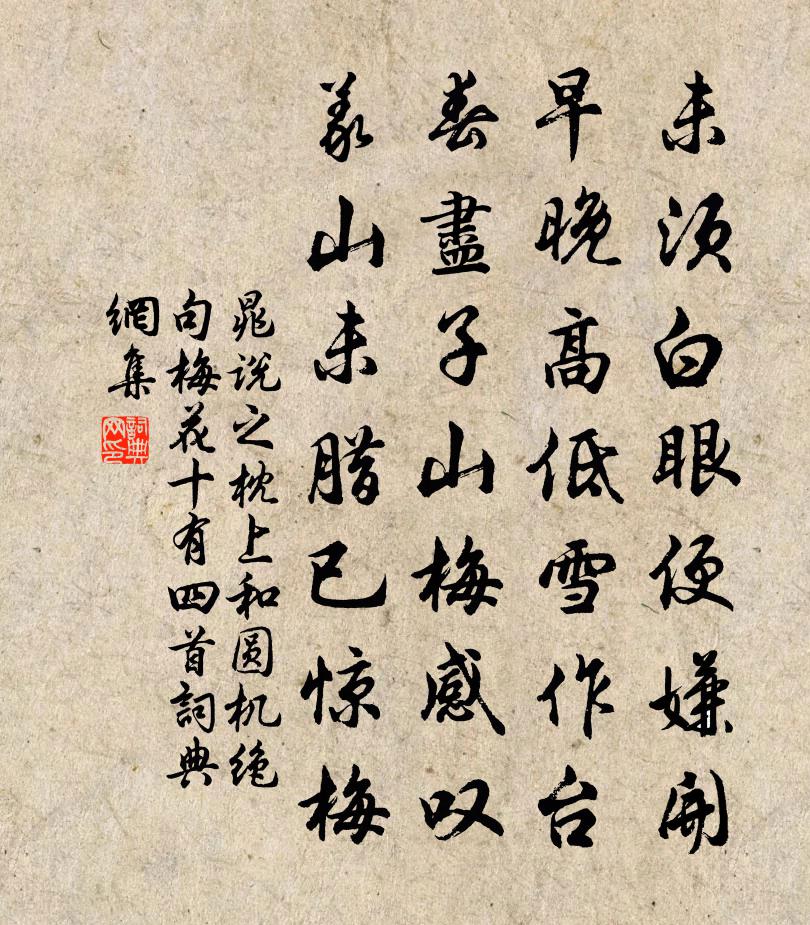 未須白眼便嫌開
早晚高低雪作台
春盡子山梅感叹
義山未腊已惊梅
晁說之枕上和圆机绝
句梅花十有四首詞典
網集
詞典
网印